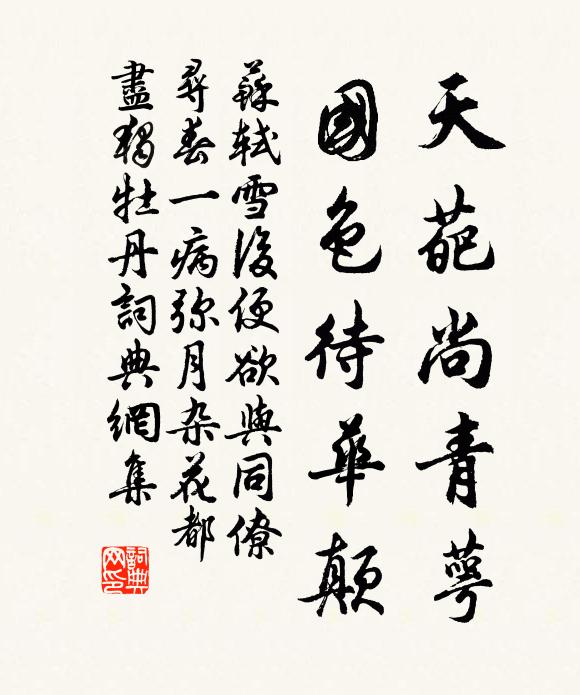 天葩尚青萼
國色待華顛
蘇軾雪後便欲與同僚
尋春一病弥月杂花都
盡獨牡丹詞典網集
詞典网印